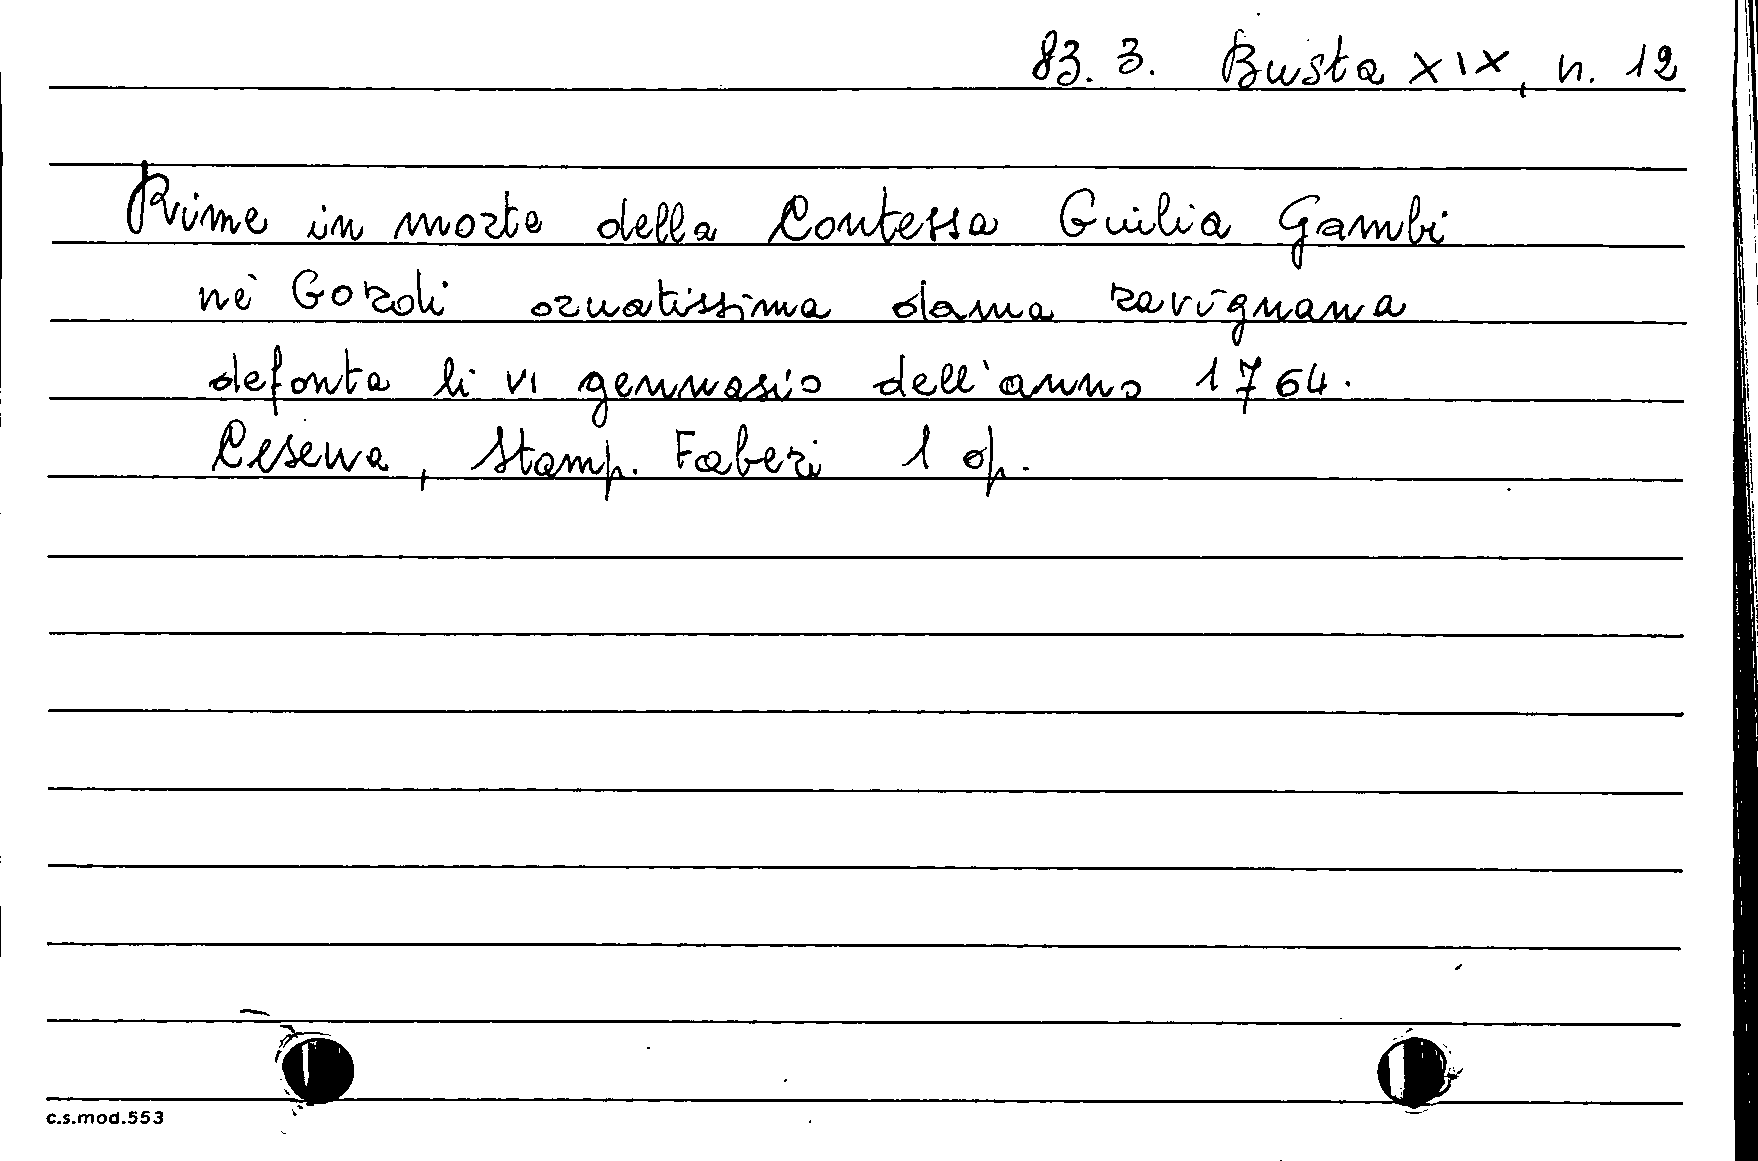 83. 3. Busta XIX, n. 12
Rime in morte della Contessa Giulia Gambi
nè Gordi ornatissima dama ravignana
defonta li VI gennasio dell'anno 1764.
Cesena, Stamp. Faberi 1 op.
c.s.mod.553